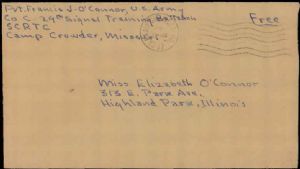 Pvt. Francis J. O'Connor, U.S. Army
Co C. 29th Signal Training Battalion
SCRTC
Camp Crowder, Missouri
Free
Miss Elizabeth O'Connor
313 E. Park Ave.
Highland Park, Illinois